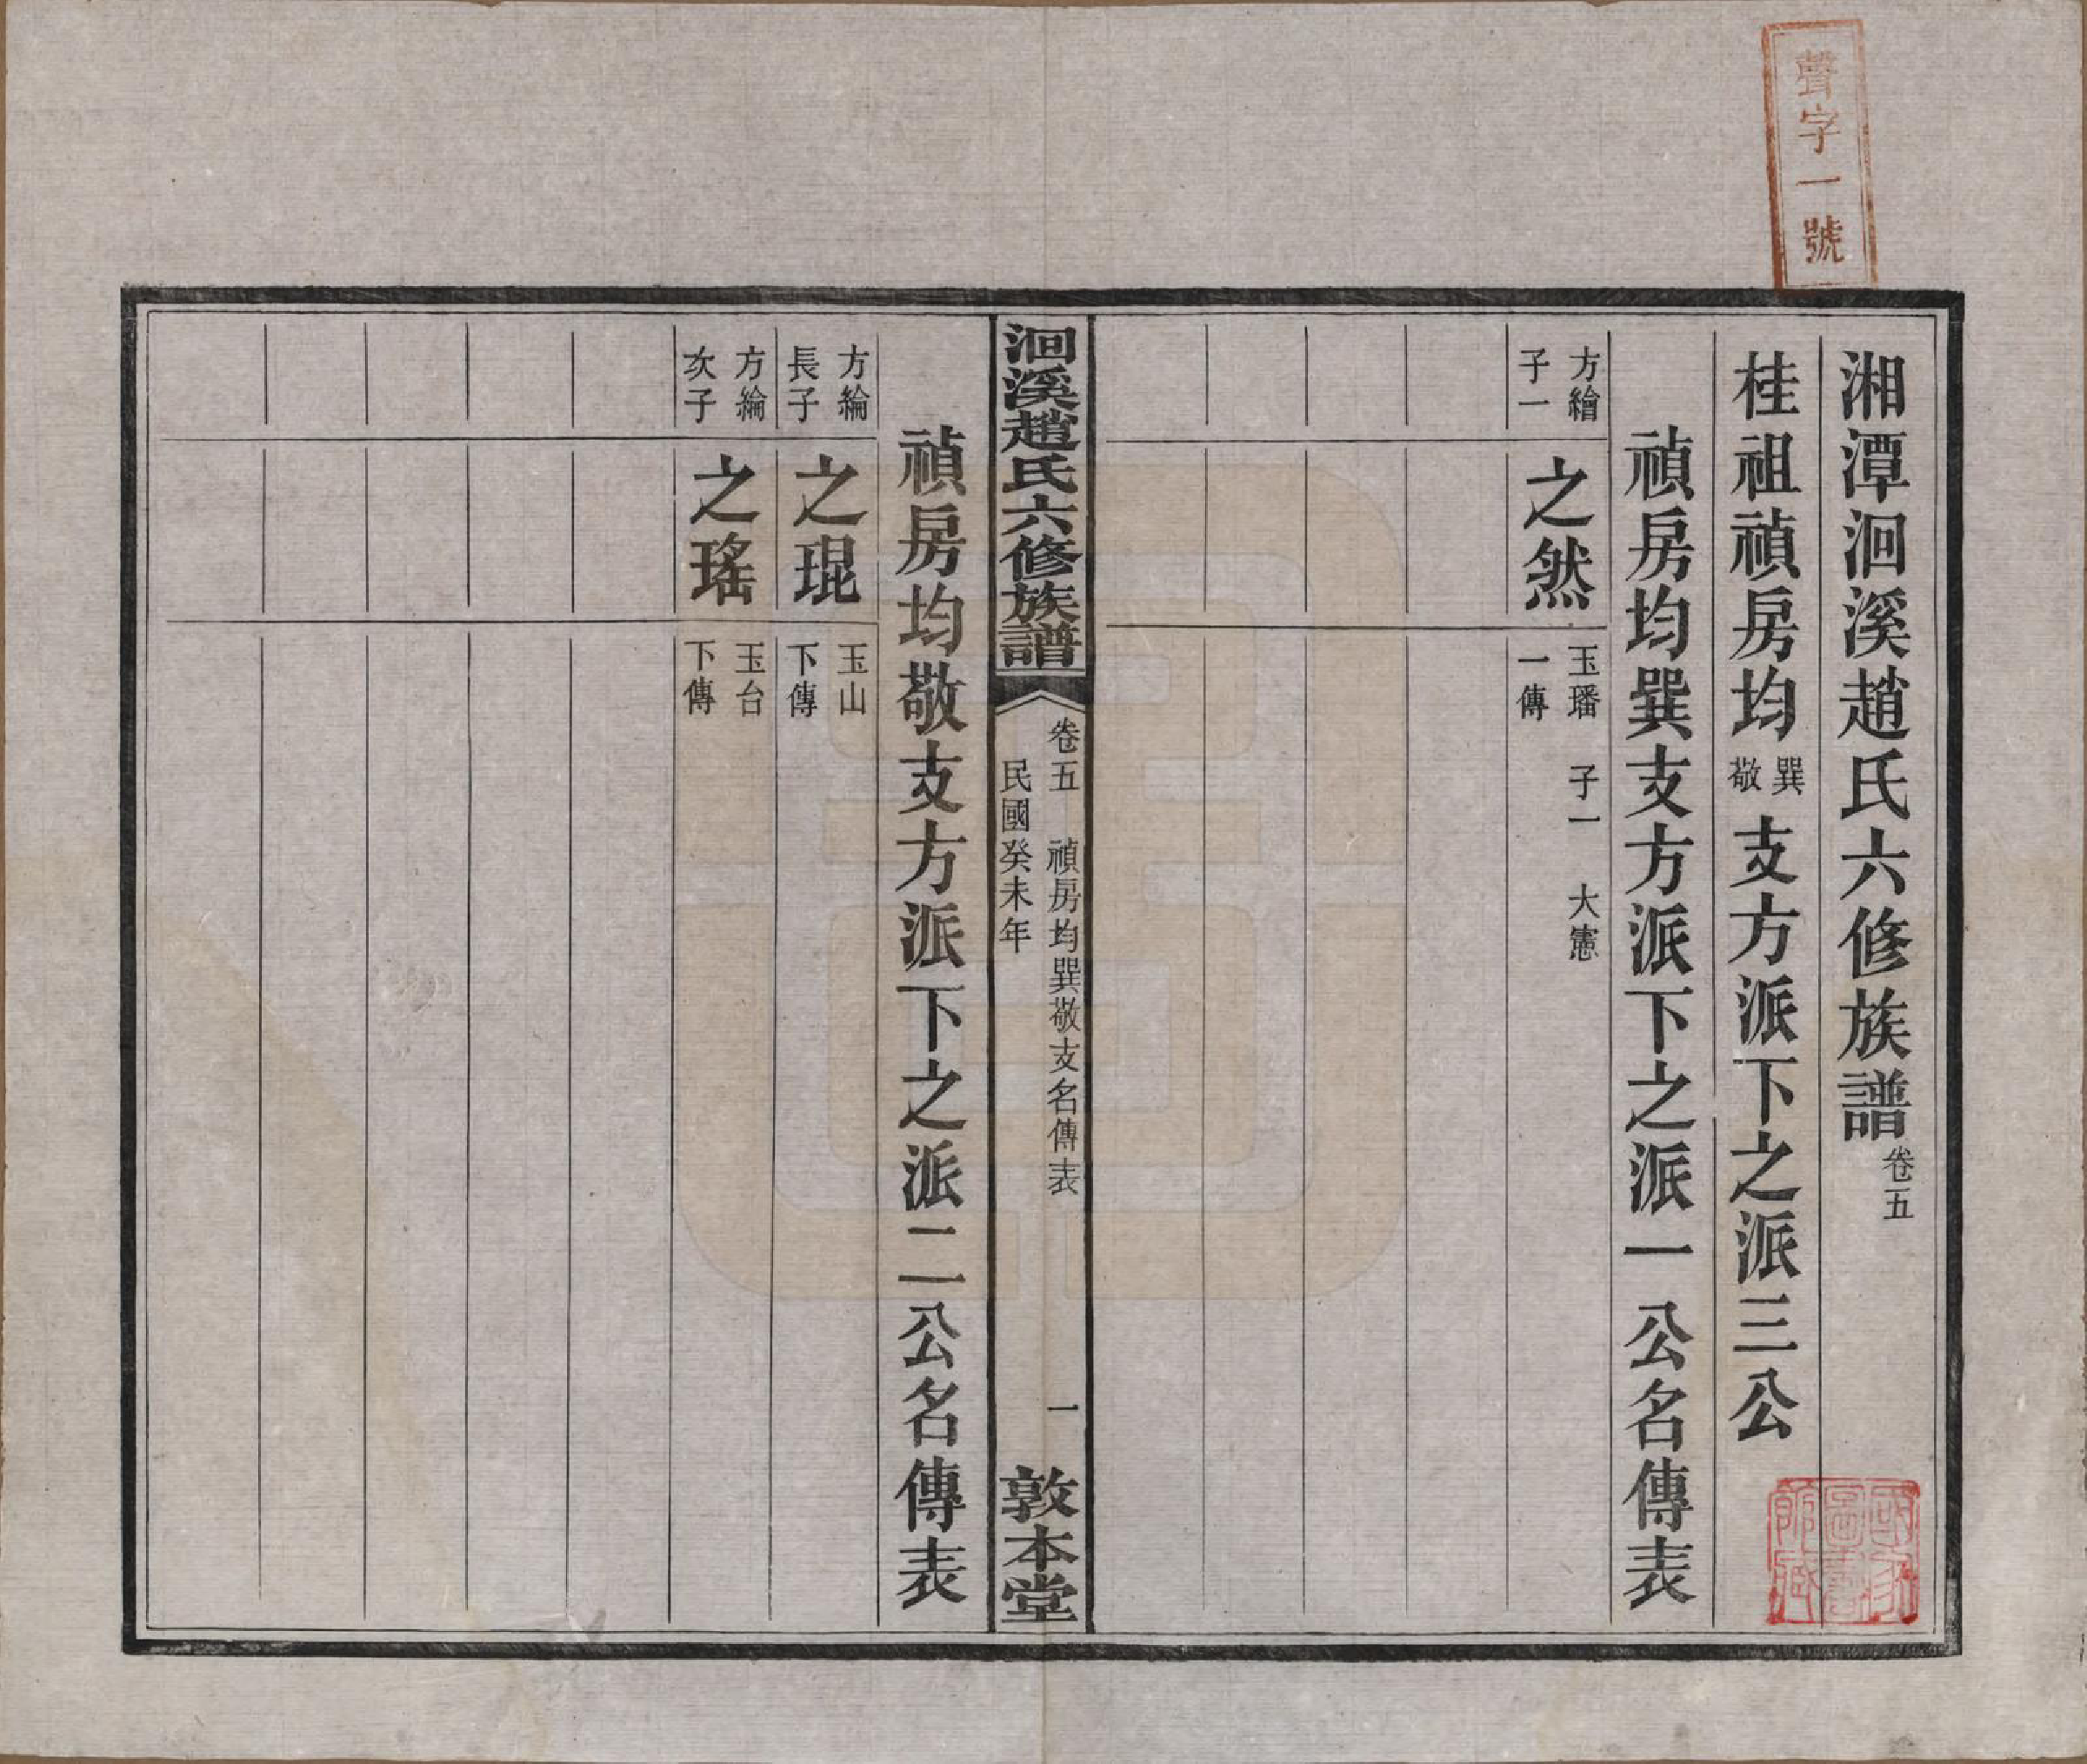 聲字一號
湘潭洄溪趙氏六修族譜卷五
桂祖禎房均巽敬支方派下之派三公
禎房均巽支方派下之派一公名傳表
方繪
子一
之然
玉璠 子一 大憲
一傳
洄溪趙氏六修族譜
卷五 禎房均巽敬支名傳表 一
民國癸未年
敦本堂
禎房均敬支方派下之派二公名傳表
方綸
長子
之琨
玉山
下傳
方綸
次子
之瑤
玉台
下傳